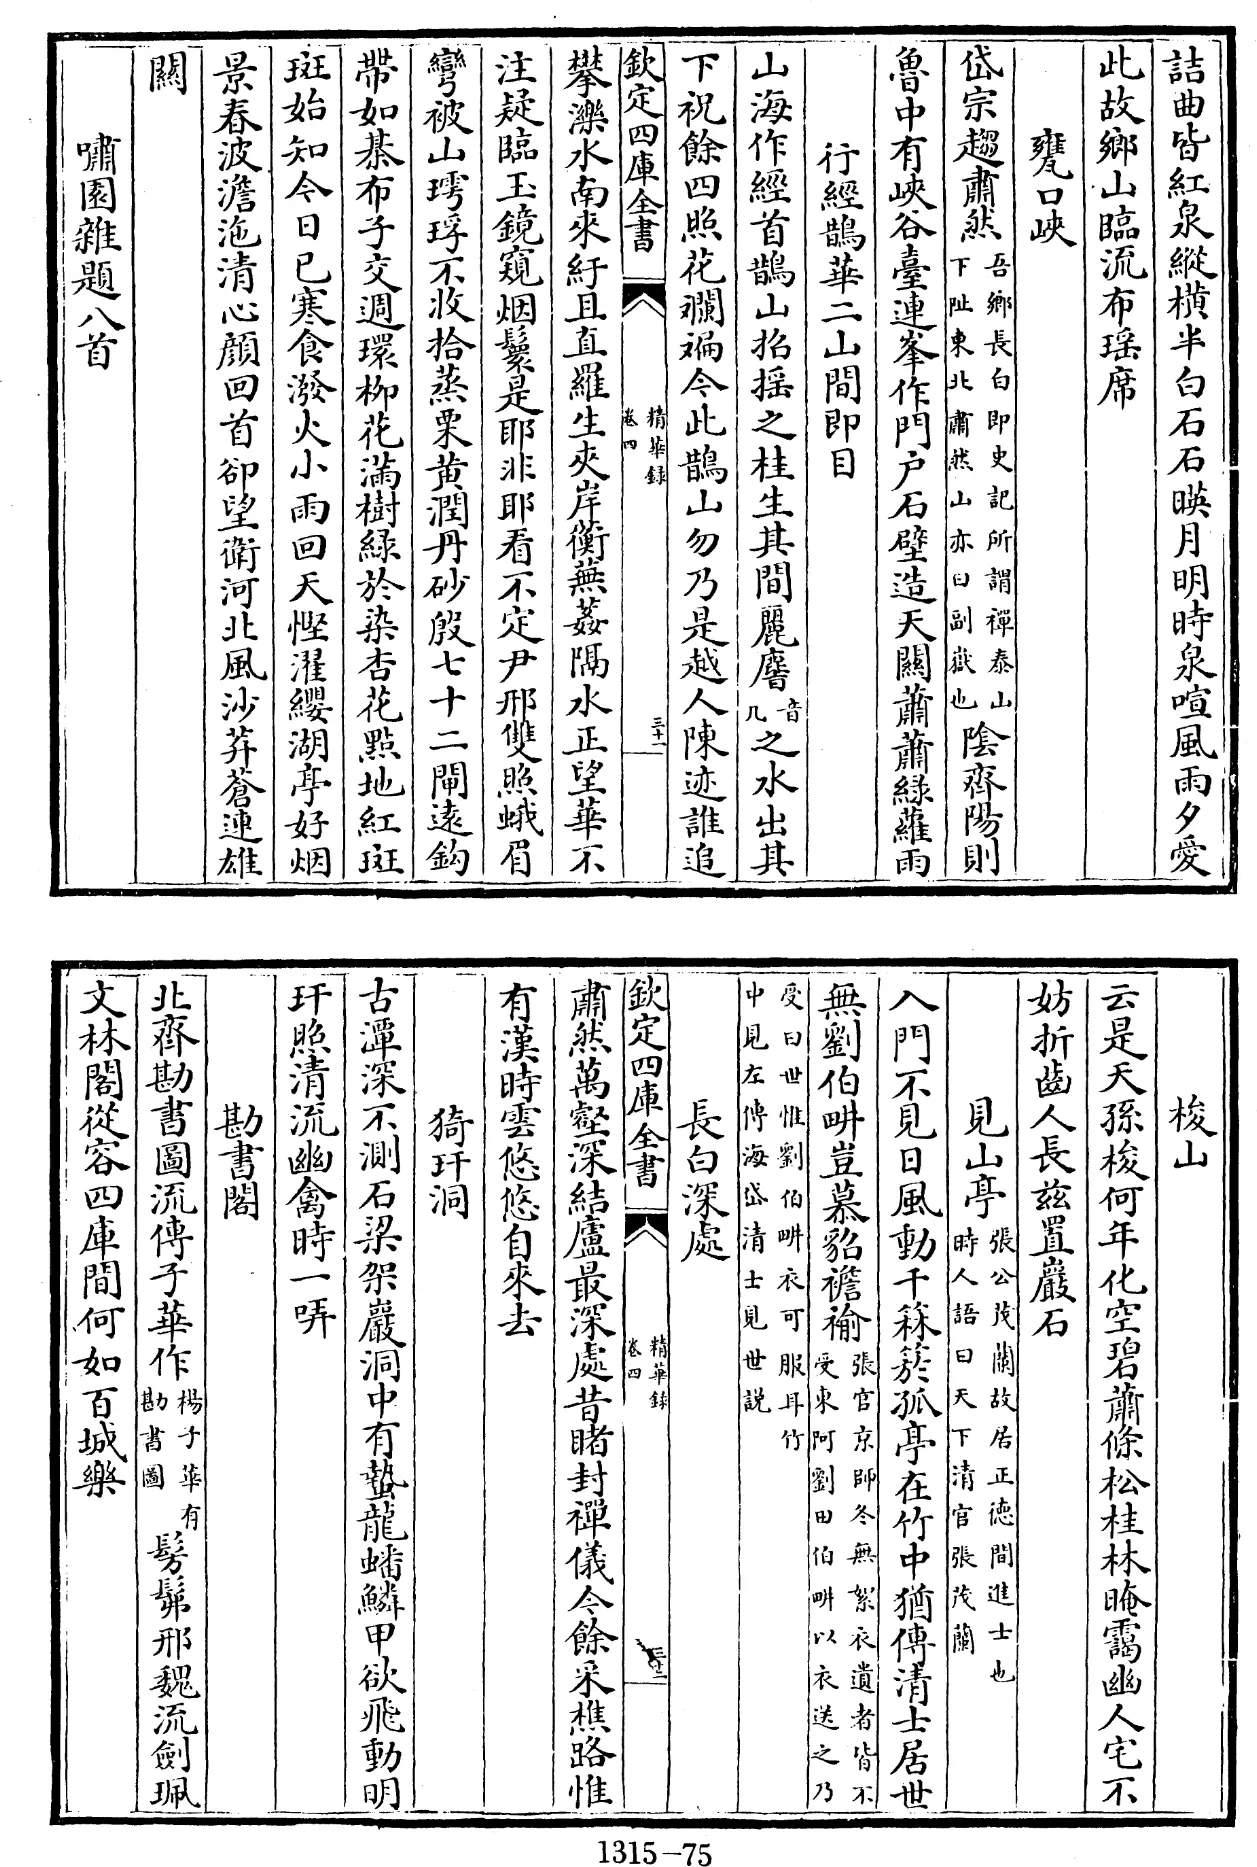 詰曲皆紅泉縱横半白石石暎月明時泉喧風雨夕愛
此故鄉山臨流布瑶席
甕口峽
岱宗趨肅然吾鄉長白即史記所謂禪泰山下阯東北肅然山亦曰副嶽也陰齊陽則
魯中有峽谷臺連峯作門户石壁造天關蕭蕭緑蘿雨
行經鵲華二山間即目
山海作經首鵲山招摇之桂生其間麗𪊨音几之水出其
下祝餘四照花斕斒今此鵲山勿乃是越人陳迹誰追
欽定四庫全書
精華録
卷四
三十一
攀濼水南來紆且直羅生夾岸蘅蕪葌隔水正望華不
注疑臨玉鏡窺烟鬟是耶非耶看不定尹邢雙照蛾眉
彎被山㻏琈不收拾蒸栗黄潤丹砂殷七十二閘遠鈎
帶如棊布子交週環柳花滿樹緑於染杏花點地紅斑
斑始知今日已寒食潑火小雨回天慳濯纓湖亭好烟
景春波澹沲清心顔回首卻望衛河北風沙莽蒼連雄
關
嘯園雜題八首
梭山
云是天孫梭何年化空碧蕭條松桂林晻靄幽人宅不
妨折齒人長兹置巖石
見山亭張公茂蘭故居正德間進士也時人語曰天下清官張茂蘭
入門不見日風動千籁篸孤亭在竹中猶傳清士居世
無劉伯畊豈慕貂襜褕張官京師冬無絮衣遺者皆不受東阿劉田伯畊以衣送之乃
受曰世惟劉伯畊衣可服耳竹中見左傳海岱清士見世説
長白深處
欽定四庫全書
精華録
卷四
三十二
肅然萬壑深結廬最深處昔睹封禪儀今餘采樵路惟
有漢時雲悠悠自來去
猗玕洞
古潭深不測石梁架巖洞中有蟄龍蟠鱗甲欲飛動明
玕照清流幽禽時一哢
勘書閣
北齊勘書圖流傳子華作楊子華有勘書圖髣髴邢魏流劍珮
文林閣從容四庫間何如百城樂
1315-75